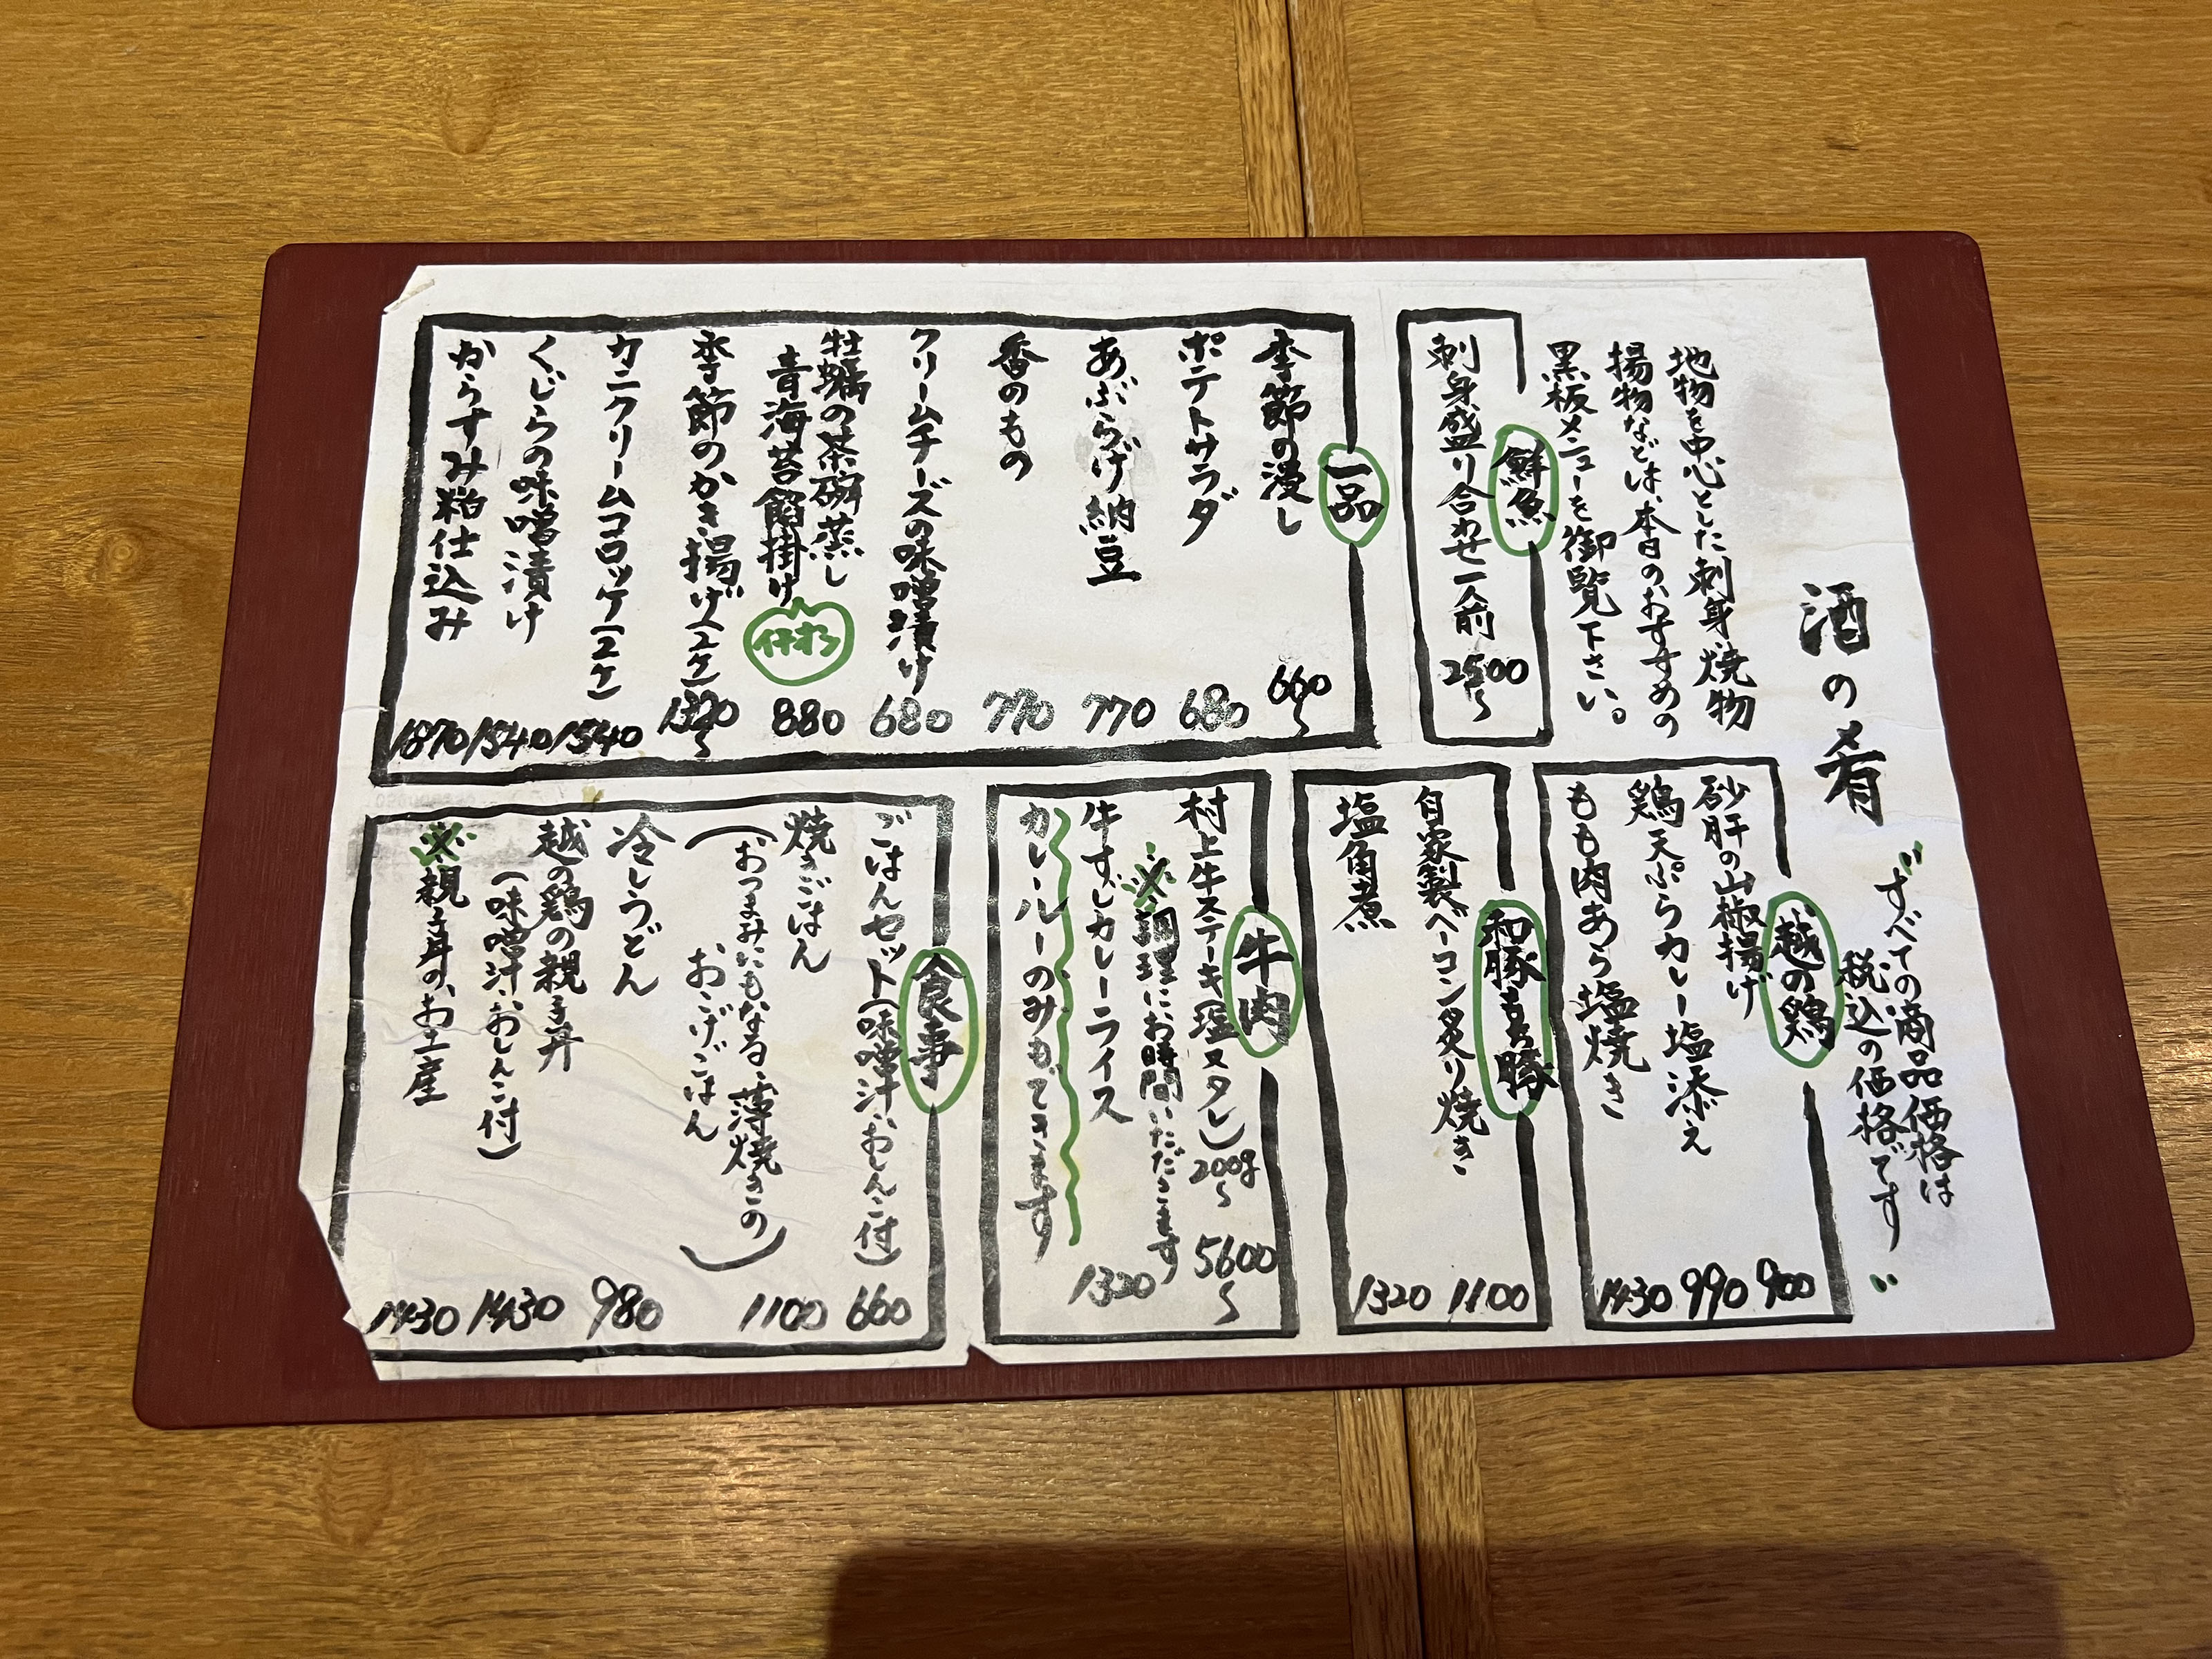 酒の肴
"すべての商品価格は
税込の価格です"
地物を中心とした刺身焼物
揚物などは、本日のおすすめの
黒板メニューを御覧下さい。
鮮魚
刺身盛り合わせ一人前 2500〜
一品
季節の浸し 660〜
ポテトサラダ 680
あぶらげ納豆 770
香のもの 770
クリームチーズの味噌漬け 680
牡蠣の茶碗蒸し
青海苔餡掛け 880
季節のかき揚げ(2ケ) 1320〜
カニクリームコロッケ(2ケ) 1540
くじらの味噌漬け 1540
からすみ粕仕込み 1870
越の鶏
砂肝の山椒揚げ 900
鶏天ぷらカレー塩添え 990
もも肉あら塩焼き 1430
和豚もち豚
自家製ベーコン炙り焼き 1100
塩角煮 1320
牛肉
村上牛ステーキ塩又タレ)200g〜 5600〜
※調理にお時間いただきます
牛すじカレーライス 1320
カレールーのみもできます
食事
ごはんセット(味噌汁、おしんこ付) 660
焼きごはん 1100
(おつまみにもなる、薄焼きの
おこげごはん)
冷しうどん 980
越の鶏の親子丼 1430
(味噌汁、おしんこ付)
※親子丼の、お土産 1430